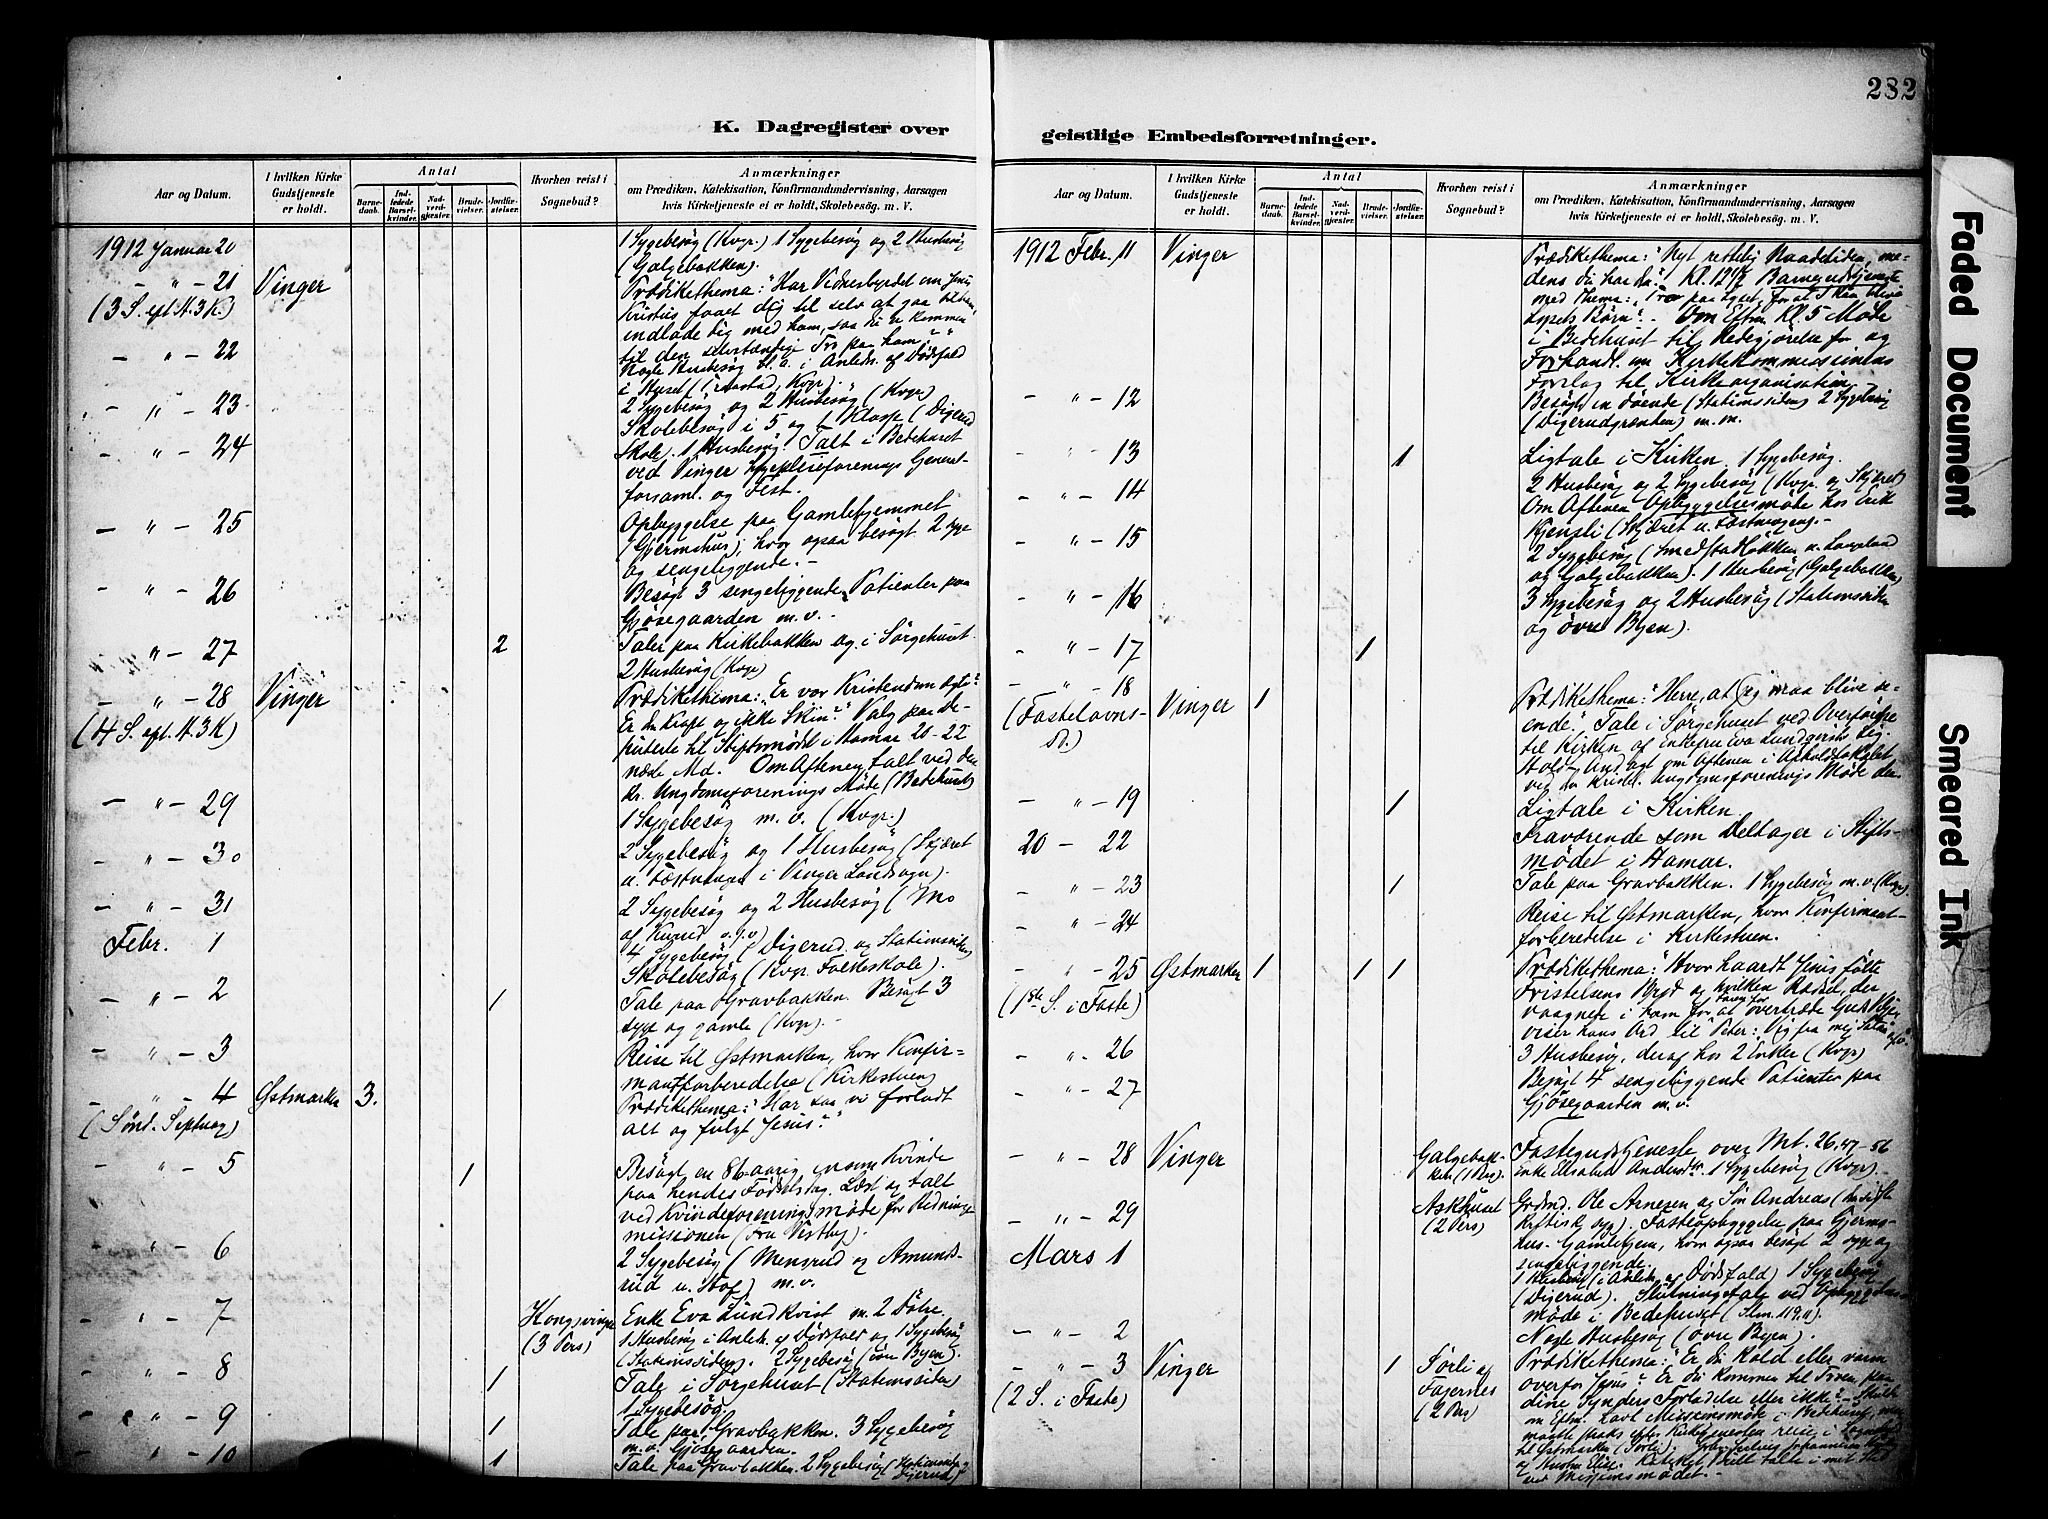 282
K. Dagregister over
geistlige Embedsforretninger.
Aar og Datum.
I hvilken Kirke
Gudstjeneste
er holdt.
Antal
Barne-
daab.
Ind-
ledede
Barsel-
kvinder.
Nad-
verd-
gjester.
Brude-
vielser.
Jordfæ-
stelser.
Hvorhen reist i
Sognebud?
Anmærkninger
om Prædiken, Katekisation, Konfirmandundervisning, Aarsagen
hvis Kirketjeneste ei er holdt, Skolebesøg. m. V.
1912 Januar 20
1 Sygebesøg (Kvgr.) 1 Sygebesøg og 2 Husbesøg
(Galgebakken).
- " - 21 Vinger
(3 S. eft. H. 3 K.)
Prædikethema: "Har Vidnesbyrdet om Jesus
Kristus faaet dig til selv at gaa til ham,
indlade dig med ham, saa du er kommen
til den selvstændige Tro paa ham"
- " - 22
Nogle Husbesøg bl. a. i Anledn. af Dødsfald
i Huset (Kvgr).
- " - 23
2 Sygebesøg og 2 Husbesøg (Kvgr)
Skolebesøg i 5 og Klasse (Digerud
- " - 24
Skole. 1 Husbesøg. Talt i Bedehuset
ved Vinger Sygepleieforenings General-
forsaml. og Fest.
- " - 25
Opbyggelse paa Gamlehjemmet
(Gjermshus), hvor ogsaa besøgt 2 syge
og sengeliggende. -
- " - 26
Besøgt 3 sengeliggende Patienter paa
Gjøsegaarden m. v. -
" - 27 2
Taler paa Kirkebakken og i Sørgehuset
2 Husbesøg (Kvgr)
- " - 28 Vinger
(4 S. eft. H. 3 K)
Prædikethema: "Er vor Kristendom ægte?
Er den Kraft og ikke Skin?" Valg paa De-
puterte til Stiftsmødet i Hamar 20-22
næste Md. Om Aftenen talt ved den
kr. Ungdomsforenings Møde (Bedehuset)
- " - 29
1 Sygebesøg m. v. (Kvgr.)
- " - 30
2 Sygebesøg og 1 Husbesøg (Skjæret
u. Fæstningen i Vinger Landsogn).
- " - 31
2 Sygebesøg og 2 Husbesøg (Mo
af Kurud o. s. v)
Febr. 1
4 Sygebesøg (Digerud og Stationssiden)
Skolebesøg (Kvgr. Folkeskole).
- " - 2 1
Tale paa Gravbakken. Besøgt 3
syge og gamle (Kvgr). -
- " - 3
Reise til Østmarken, hvor Konfir-
mantforberedelse (Kirkestuen)
- " - 4 Østmarken 3.
(Sønd. Septuag)
Prædikethema: "Har saa vi forladt
alt og fulgt Jesus?"
- " - 5 1
Besøgt en 86-aarig ensom Kvinde
paa hendes Fødselsdag. Læst og talt
ved Kvindeforeningsmøde for Hedninge-
missionen (Fru Vestby).
- " - 6
2 Sygebesøg (Mensrud og Amunds-
rud u. Hof) m. v.
" - 7 Kongsvinger
(3 Pers)
Enke Eva Lundkvist m. 2 Døtre
1 Husbesøg i Anledn. af Dødsfald og 1 Sygebesøg
(Stationssiden). 2 Sygebesøg (øvre Byen).
- " - 8 1
Tale i Sørgehuset (Stationssiden)
1 Sygebesøg.
- " - 9 1
Tale paa Gravbakken. 3 Sygebesøg
m. v. Gjøsegaarden.
- " - 10 1
Tale paa Gravbakken. 2 Sygebesøg (Stationssiden og
Digerud)
Aar og Datum.
I hvilken Kirke
Gudstjeneste
er holdt.
Antal
Barne-
daab.
Ind-
ledede
Barsel-
kvinder.
Nad-
verd-
gjester.
Brude-
vielser.
Jordfæ-
stelser.
Hvorhen reist i
Sognebud?
Anmærkninger
om Prædiken, Katekisation, Konfirmandundervisning, Aarsagen
hvis Kirketjeneste ei er holdt, Skolebesøg. m. V.
1912 Febr. 11 Vinger
Prædikethema: "Nyt rettelig Naadetiden, me-
dens du har den". Kl. 12 1/2 Barnegudstjeneste
med Thema: "Tro paa Lyset, for at I kan blive
Lysets Børn". - Om Eftm Kl. 5 Møde
i Bedehuset til Redegjørelse for og
Forhandl. om Kirkekommissionens
Forslag til Kirkeorganisation
- " - 12
Besøgt en døende (Stationssiden) 2 Sygebesøg
(Digerudgrænten) m. m.
" - 13 1
Ligtale i Kirken. 1 Sygebesøg.
- " - 14
2 Husbesøg og 2 Sygebesøg (Kvgr. og Skjæret)
Om Aftenen Opbyggelsesmøde hos Erik
Kjensli (Skjæret u. Fæstningen). -
- " - 15
2 Sygebesøg (Smedstadbakken u. Langeland
og Galgebakken). 1 Husbesøg (Galgebakken)
- " - 16
3 Sygebesøg og 2 Husbesøg (Stationssiden
og øvre Byen).
- " - 17 1
- " - 18 Vinger 1
(Fastelavns-
sd.)
Prædikethema: "Herre, at jeg maa blive se-
ende." Tale i Sørgehuset ved Overførsel
til Kirken af Enkefru Eva Lundgersts Lig.
Holdt Andagt om Aftenen i Afholdslokalet
ved den kristel. Ungdomsforenings Møde der
- " - 19 1
Ligtale i Kirken.
20 - 22
Fraværende som Deltager i Stifts-
mødet i Hamar.
- " - 23 1
Tale paa Gravbakken. 1 Sygebesøg m. v. (Kvgr).
- " - 24
Reise til Østmarken, hvor Konfirmant-
forberedelse i Kirkestuen.
- " - 25 Østmarken 1 1 1
(1ste S. i Faste)
Prædikethema: "Hvor haardt Jesus følte
Fristelsens Brod og hvilken Rædsel, der
vaagnede i ham for at overtræde Guds Vilje,
viser hans Ord til Peter: Vig fra mig Satan" osv.
- " - 26
3 Husbesøg, deraf hos 2 Enker (Kvgr)
- " - 27
Besøgt 4 sengeliggende Patienter paa
Gjøsegaarden m. v.
- " - 28 Vinger Galgebak-
ken (1 Pers).
Fastegudstjeneste over Mt. 26, 47-56
Enke Elisabet Andersdtr. 1 Sygebesøg (Kvgr).
- " - 29 Askhuset
(2 Pers)
Grdmd. Ole Arnesen og Søn Andreas (den sidste
syg). Fasteopbyggelse paa Gjerms-
hus-Gamlehjem, hvor ogsaa besøgt 2 syge og
sengeliggende.
Mars 1
1 Husbesøg (i Anledn. af Dødsfald) 1 Sygebesøg
(Digerud). Slutningstale ved Opbyggelses-
møde i Bedehuset (Slm. 119, 11).
- " - 2
Nogle Husbesøg (øvre Byen).
- " - 3 Vinger 1 Sørli og
Fajernes
(2 Pers)
(2 S. i Faste)
Prædikethema: "Er du kold eller varm
overfor Jesus? Er du kommen til Troen paa
dine Synders Forladelse eller ikke? - Skulde
om Eftm. havt Missionsmøde i Bedehuset, men
maatte straks efter Kirketjenesten reise i Sognebud
til Østmarken (Sørli).
og Hustru Elise. Kateket talte i mit Sted
ved Missionsmødet. -
Faded Document
Smeared Ink